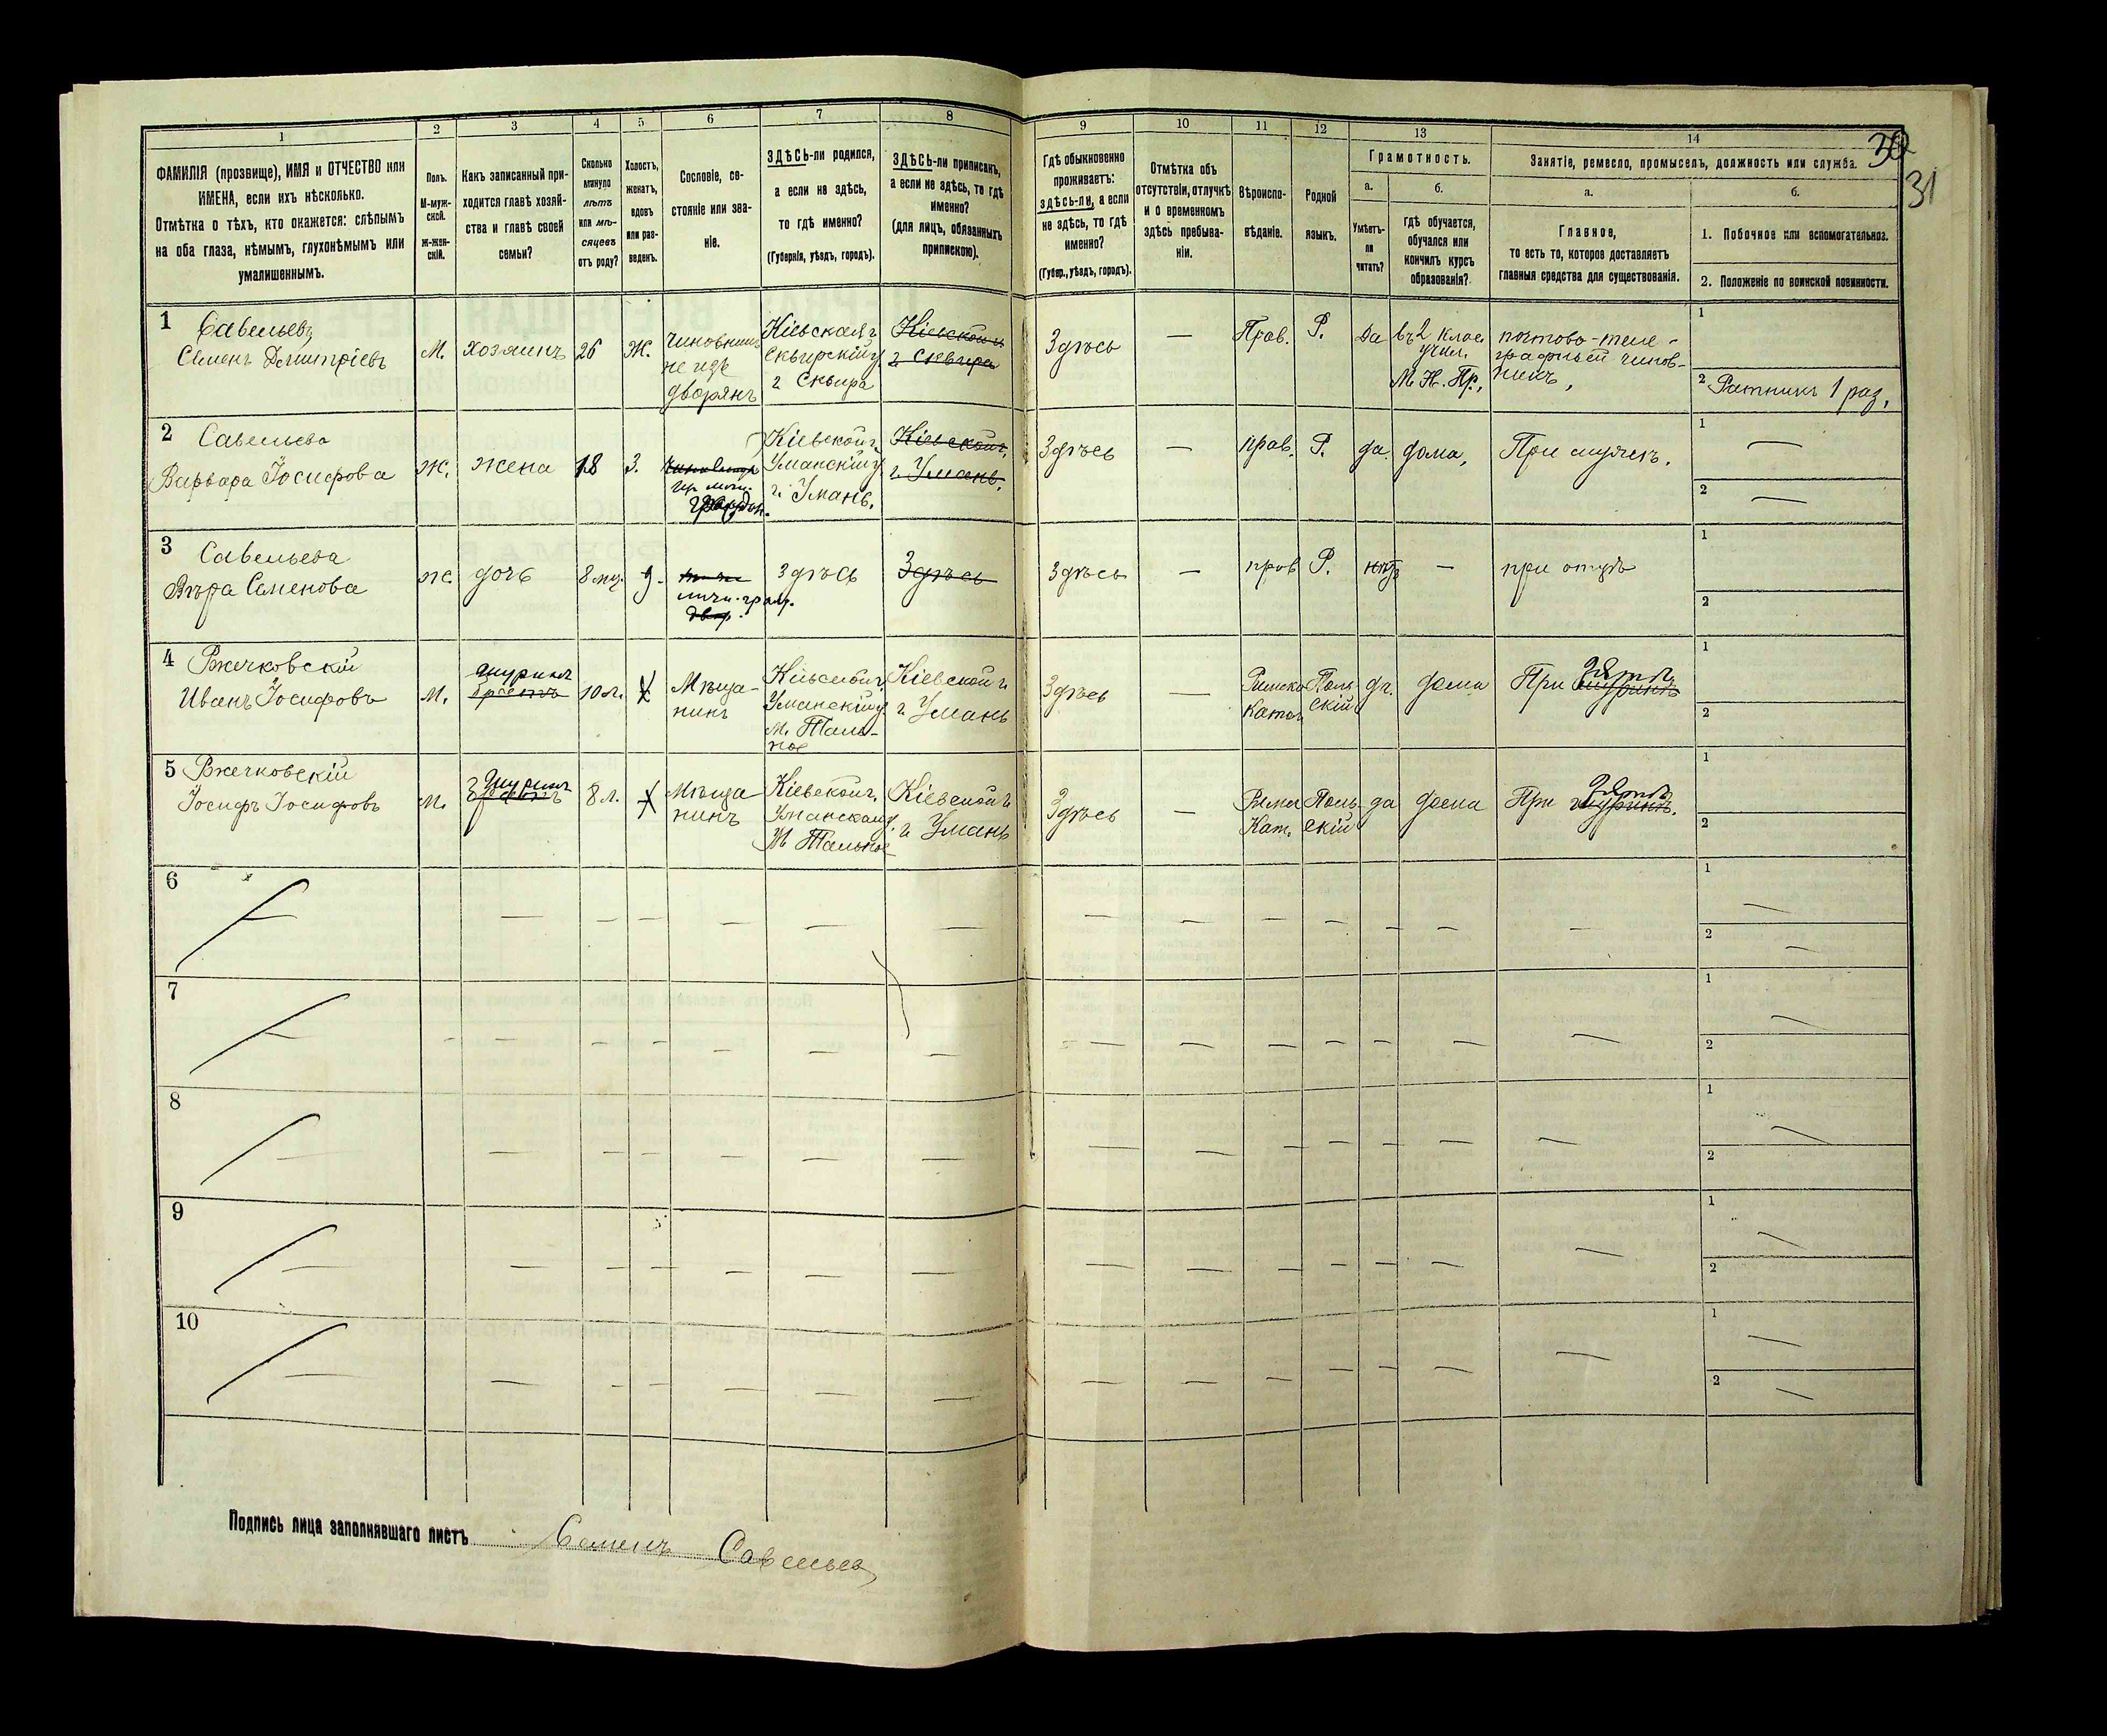 30
31
1
ФАМИЛІЯ (прозвище), ИМЯ и ОТЧЕСТВО или
ИМЕНА, если ихъ нѣсколько.
Отмѣтка о тѣхъ, кто окажется: слѣпымъ
на оба глаза, нѣмымъ, глухонѣмымъ или
умалишеннымъ.
2
Полъ.
М-муж-
ской.
ж-жен-
скій.
3
Какъ записанный при-
ходится главѣ хозяй-
ства и главѣ своей
семьи?
4
Сколько
минуло
лѣтъ
или мѣ-
сяцевъ
отъ роду?
5
Холостъ,
женатъ,
вдовъ
или раз-
веденъ.
6
Сословіе, со-
стояніе или зва-
ніе.
7
ЗДѢСЬ-ли родился,
а если не здѣсь,
то гдѣ именно?
(Губернія, уѣздъ, городъ).
8
ЗДѢСЬ-ли приписанъ,
а если не здѣсь, то гдѣ
именно?
(для лицъ, обязанныхъ
припискою).
9
Гдѣ обыкновенно
проживаетъ:
здѣсь-ли, а если
не здѣсь, то гдѣ
именно?
(Губер., уѣздъ, городъ).
10
Отмѣтка объ
отсутствіи, отлучкѣ
и о временномъ
здѣсь пребыва-
ніи.
11
Вѣроиспо-
вѣданіе.
12
Родной
языкъ.
13
Грамотность.
а.
Умѣетъ-
ли
читать?
б.
Гдѣ обучается,
обучался или
кончилъ курсъ
образованія?
14
Занятіе, ремесло, промыселъ, должность или служба.
а.
Главное,
то есть то, которое доставляетъ
главныя средства для существованія.
б.
1. Побочное или вспомогательное.
2. Положеніе по воинской повинности.
1
Савельевъ
Семенъ Дмитріевъ
М.
хозяинъ
26
Ж.
Чиновникъ
не изъ
дворянъ
Кіевская г.
Сквирскій у.
г. Сквира
Кіевской г.
г. Сквира
Здѣсь
—
Прав.
Р.
Да
въ 2 клас.
учил.
М. Н. Пр.
почтово-теле-
графный чинов-
никъ,
1
2 Ратникъ 1 раз.
2
Савельева
Варвара Іосифова
Ж.
жена
18
З.
Кіевской г.
Уманскій у.
г. Умань.
Кіевской г.
г. Умань.
Здѣсь
—
прав.
Р.
да.
дома,
При мужѣ.
1 —
2 —
3
Савельева
Вѣра Семенова
Ж.
дочь
8 мц.
д.
личн. граж.
двор.
здѣсь
Здѣсь
здѣсь
—
прав
Р.
нѣтъ
—
при отцѣ
1
2
4
Ржечковскій
Иванъ Іосифовъ
М.
шуринъ
10 л.
Х
Мѣща-
нинъ
Кіевской г.
Уманскій у.
м. Таль-
ное
Кіевской г.
г. Умань
Здѣсь
—
Римско
Катол
Поль
скій
да.
дома
При зятѣ шуринѣ
1
2
5
Ржечковскій
Іосифъ Іосифовъ
м.
шуринъ
8 л.
Х
Мѣща
нинъ
Кіевской г.
Уманскому.
М Тальное
Кіевской г.
г. Умань
Здѣсь
—
Римск
Кат.
Поль-
скій
да
дома
При зятѣ шуринѣ.
1
2
6
1
2
7
1
2
8
1
2
9
1
2
10
1
2
Подпись лица заполнявшаго листъ Семенъ Савельевъ